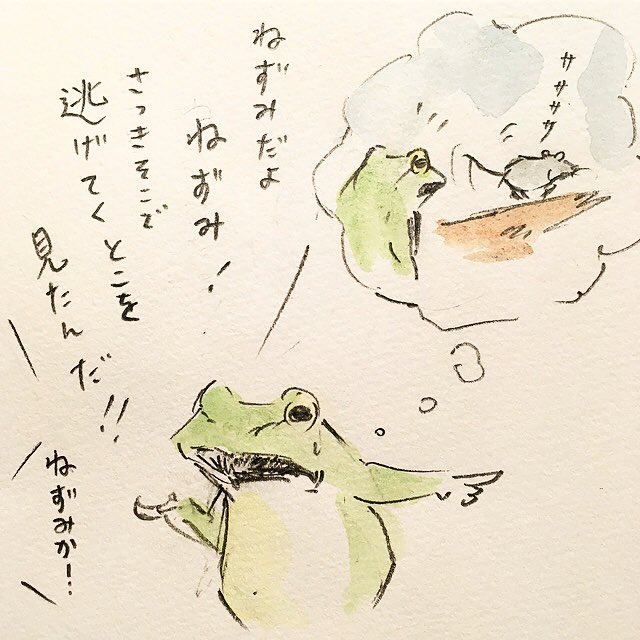 ササササ
ねずみだよ
ねずみ!
さっきそこで
逃げてくとこを
見たんだ!!
ねずみか!